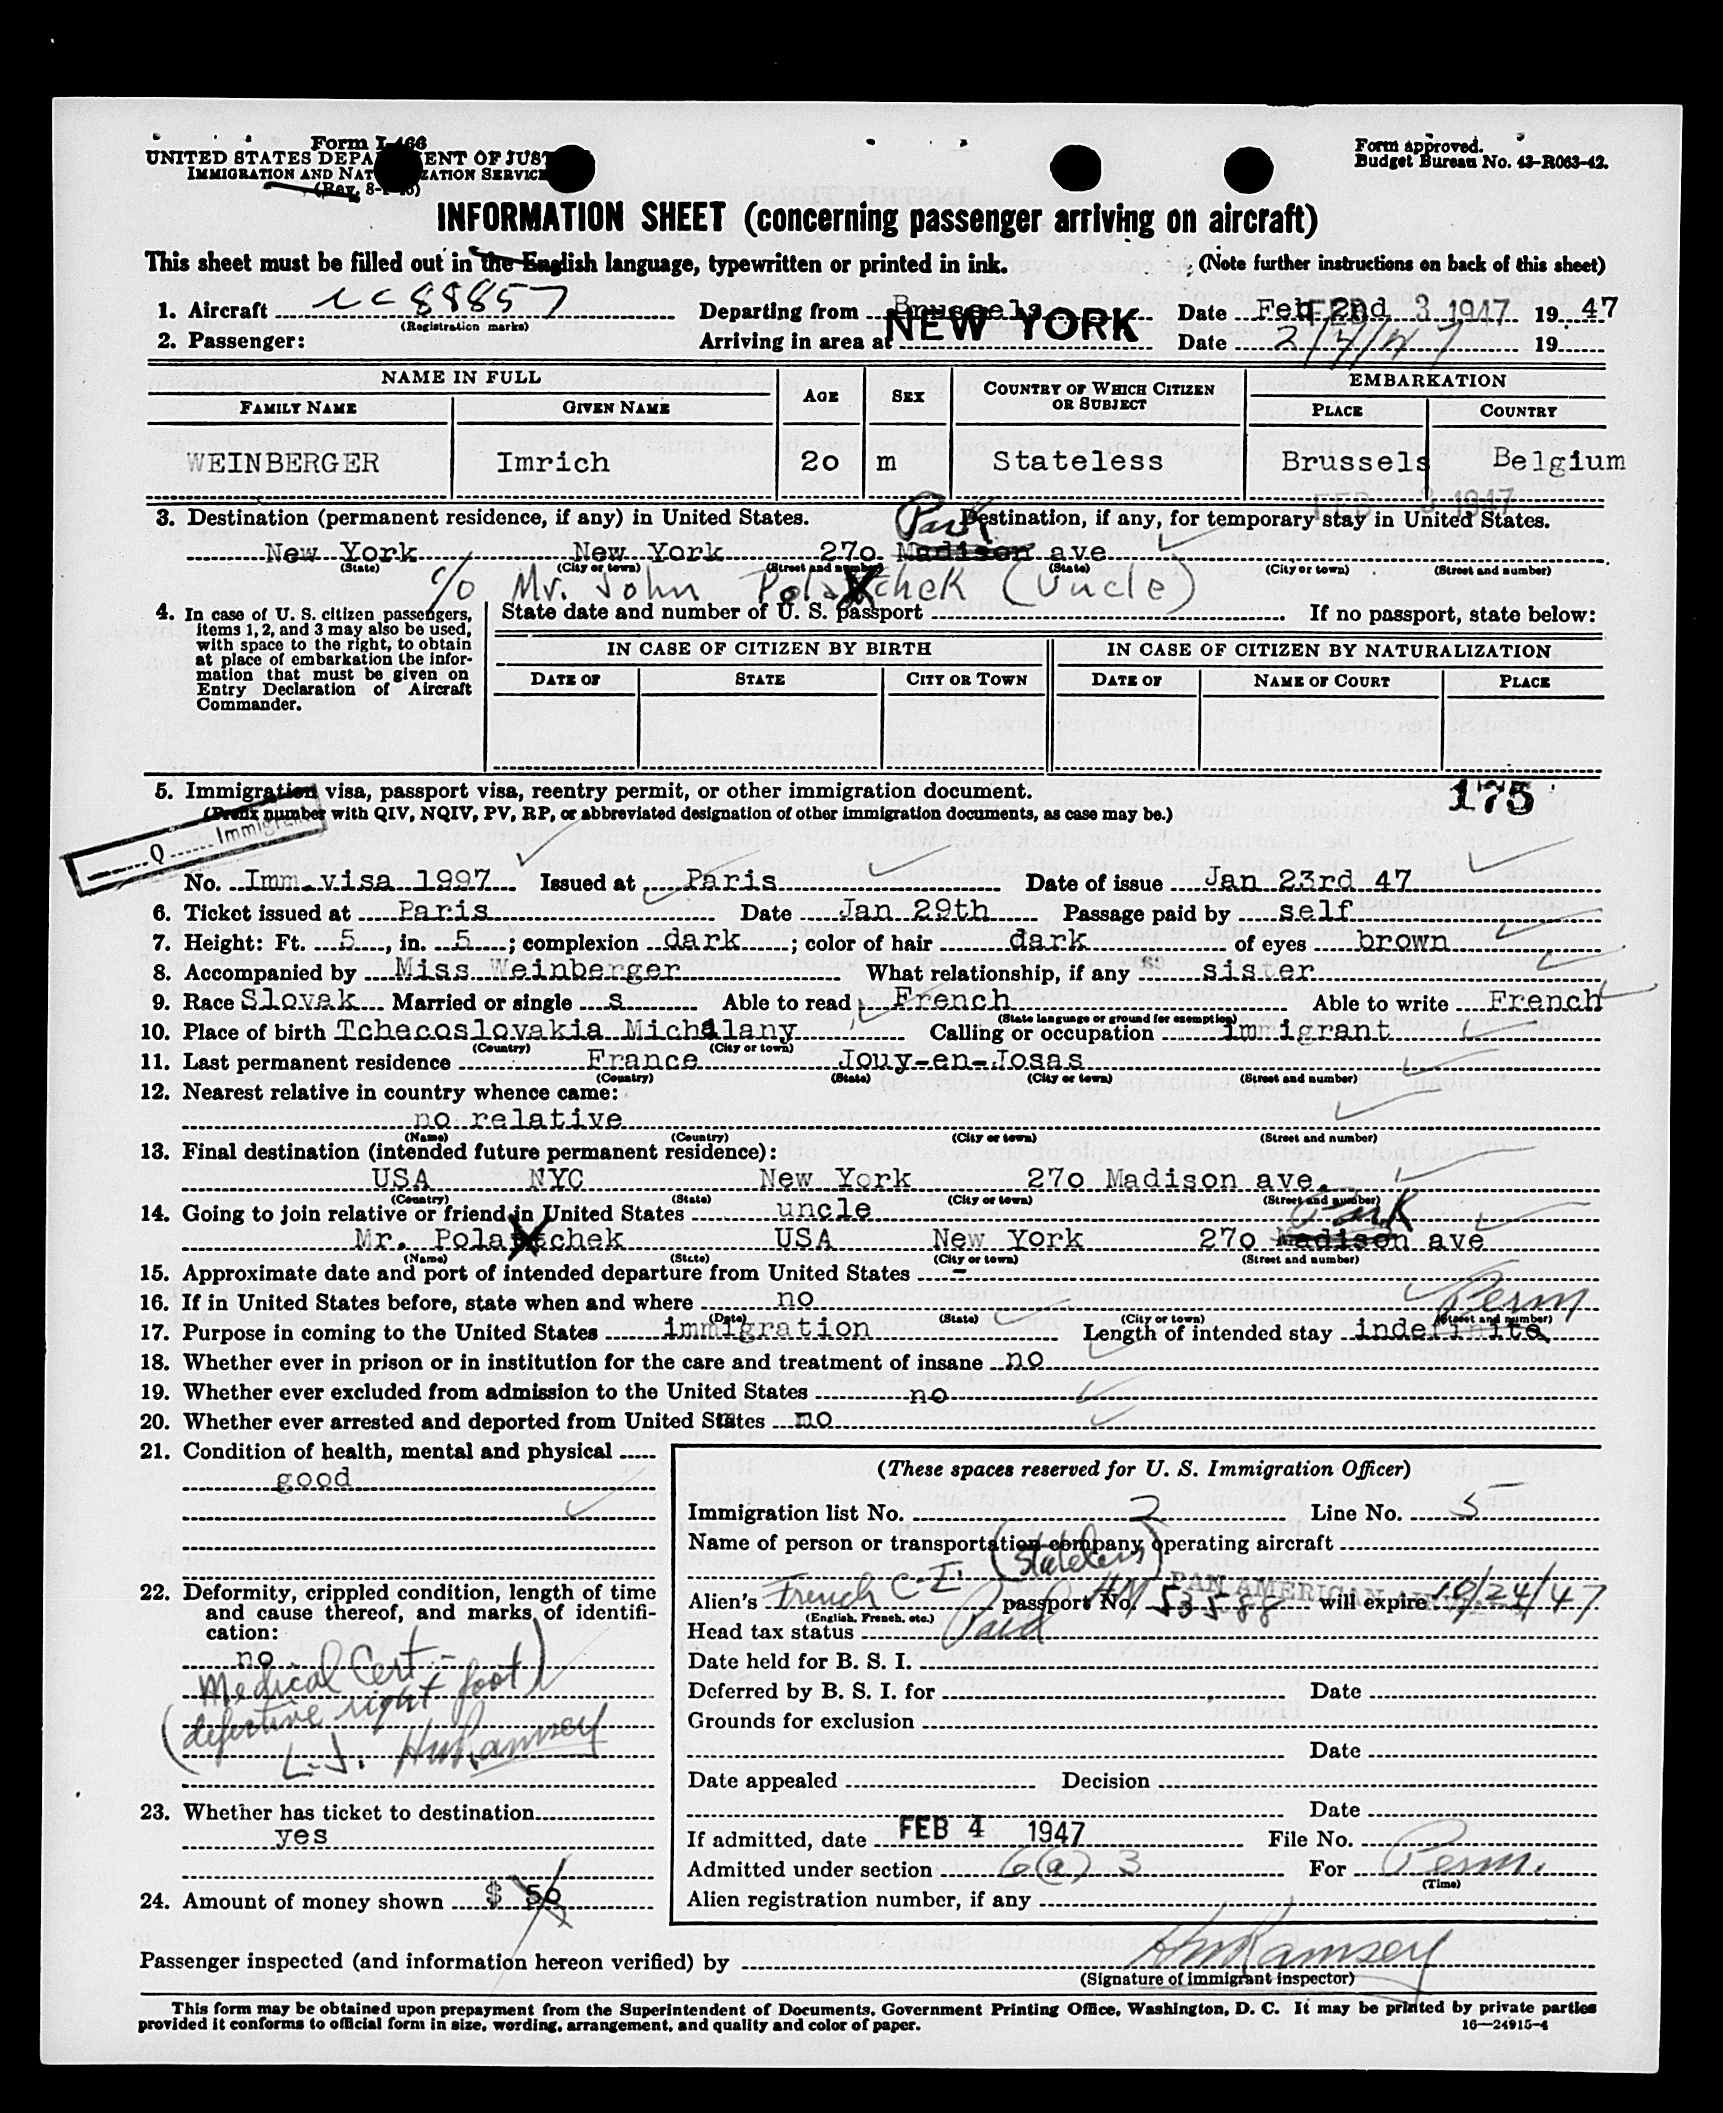 Form I-466
UNITED STATES DEPA ENT OF JUST
IMMIGRATION AND NAT ZATION SERVICE
(Rev. 8-1-45)
Form approved.
Budget Bureau No. 43-R063-42.
INFORMATION SHEET (concerning passenger arriving on aircraft)
This sheet must be filled out in the English language, typewritten or printed in ink. (Note further instructions on back of this sheet)
1. Aircraft NC 88857 Departing from Brussels Date Feb 2nd 1947
(Registration marks) FEB 3 1947
2. Passenger: Arriving in area at NEW YORK Date 2/4/47 19
NAME IN FULL AGE SEX COUNTRY OF WHICH CITIZEN OR SUBJECT EMBARKATION
FAMILY NAME GIVEN NAME PLACE COUNTRY
WEINBERGER Imrich 20 m Stateless Brussels Belgium
FEB 3 1947
3. Destination (permanent residence, if any) in United States. Destination, if any, for temporary stay in United States.
Park
New York New York 270 Madison ave
(State) (City or town) (Street and number) (State) (City or town) (Street and number)
c/o Mr. John Pola chek (Uncle)
4. In case of U. S. citizen passengers, items 1, 2, and 3 may also be used, with space to the right, to obtain at place of embarkation the information that must be given on Entry Declaration of Aircraft Commander.
State date and number of U. S. passport If no passport, state below:
IN CASE OF CITIZEN BY BIRTH IN CASE OF CITIZEN BY NATURALIZATION
DATE OF STATE CITY OR TOWN DATE OF NAME OF COURT PLACE
5. Immigration visa, passport visa, reentry permit, or other immigration document. 175
(Prefix number with QIV, NQIV, PV, RP, or abbreviated designation of other immigration documents, as case may be.)
Q Immigrant
No. Imm.visa 1997 Issued at Paris Date of issue Jan 23rd 47
6. Ticket issued at Paris Date Jan 29th Passage paid by self
7. Height: Ft. 5, in. 5; complexion dark; color of hair dark of eyes brown
8. Accompanied by Miss Weinberger What relationship, if any sister
9. Race Slovak Married or single s Able to read French Able to write French
(State language or ground for exemption)
10. Place of birth Tchecoslovakia Michalany Calling or occupation immigrant
(Country) (City or town)
11. Last permanent residence France Jouy-en-Josas
(Country) (State) (City or town) (Street and number)
12. Nearest relative in country whence came:
no relative
(Name) (Country) (City or town) (Street and number)
13. Final destination (intended future permanent residence):
USA NYC New York 270 Madison ave.
(Country) (State) (City or town) (Street and number)
14. Going to join relative or friend in United States uncle
Park
Mr. Pola chek USA New York 270 Madison ave
(Name) (State) (City or town) (Street and number)
15. Approximate date and port of intended departure from United States -
16. If in United States before, state when and where no
(Date) (State) (City or town) (Street and number)
Perm
17. Purpose in coming to the United States immigration Length of intended stay indefinite
18. Whether ever in prison or in institution for the care and treatment of insane no
19. Whether ever excluded from admission to the United States no
20. Whether ever arrested and deported from United States no
21. Condition of health, mental and physical
good
22. Deformity, crippled condition, length of time and cause thereof, and marks of identification:
no
Medical Cert.-
(defective right foot)
L.J. HmRamsey
23. Whether has ticket to destination
yes
24. Amount of money shown $ 50
(These spaces reserved for U. S. Immigration Officer)
Immigration list No. 2 Line No. 5
Name of person or transportation company operating aircraft
(Stateless)
PAN AMERICAN
Alien's French C-I. passport No. AM 53588 will expire 10/24/47
(English, French, etc.)
Head tax status Paid
Date held for B. S. I.
Deferred by B. S. I. for Date
Grounds for exclusion
Date
Date appealed Decision
Date
If admitted, date FEB 4 1947 File No.
Admitted under section 6(a) 3 For Perm.
(Time)
Alien registration number, if any
Passenger inspected (and information hereon verified) by HmRamsey
(Signature of immigrant inspector)
This form may be obtained upon prepayment from the Superintendent of Documents, Government Printing Office, Washington, D. C. It may be printed by private parties
provided it conforms to official form in size, wording, arrangement, and quality and color of paper. 16—24915-4